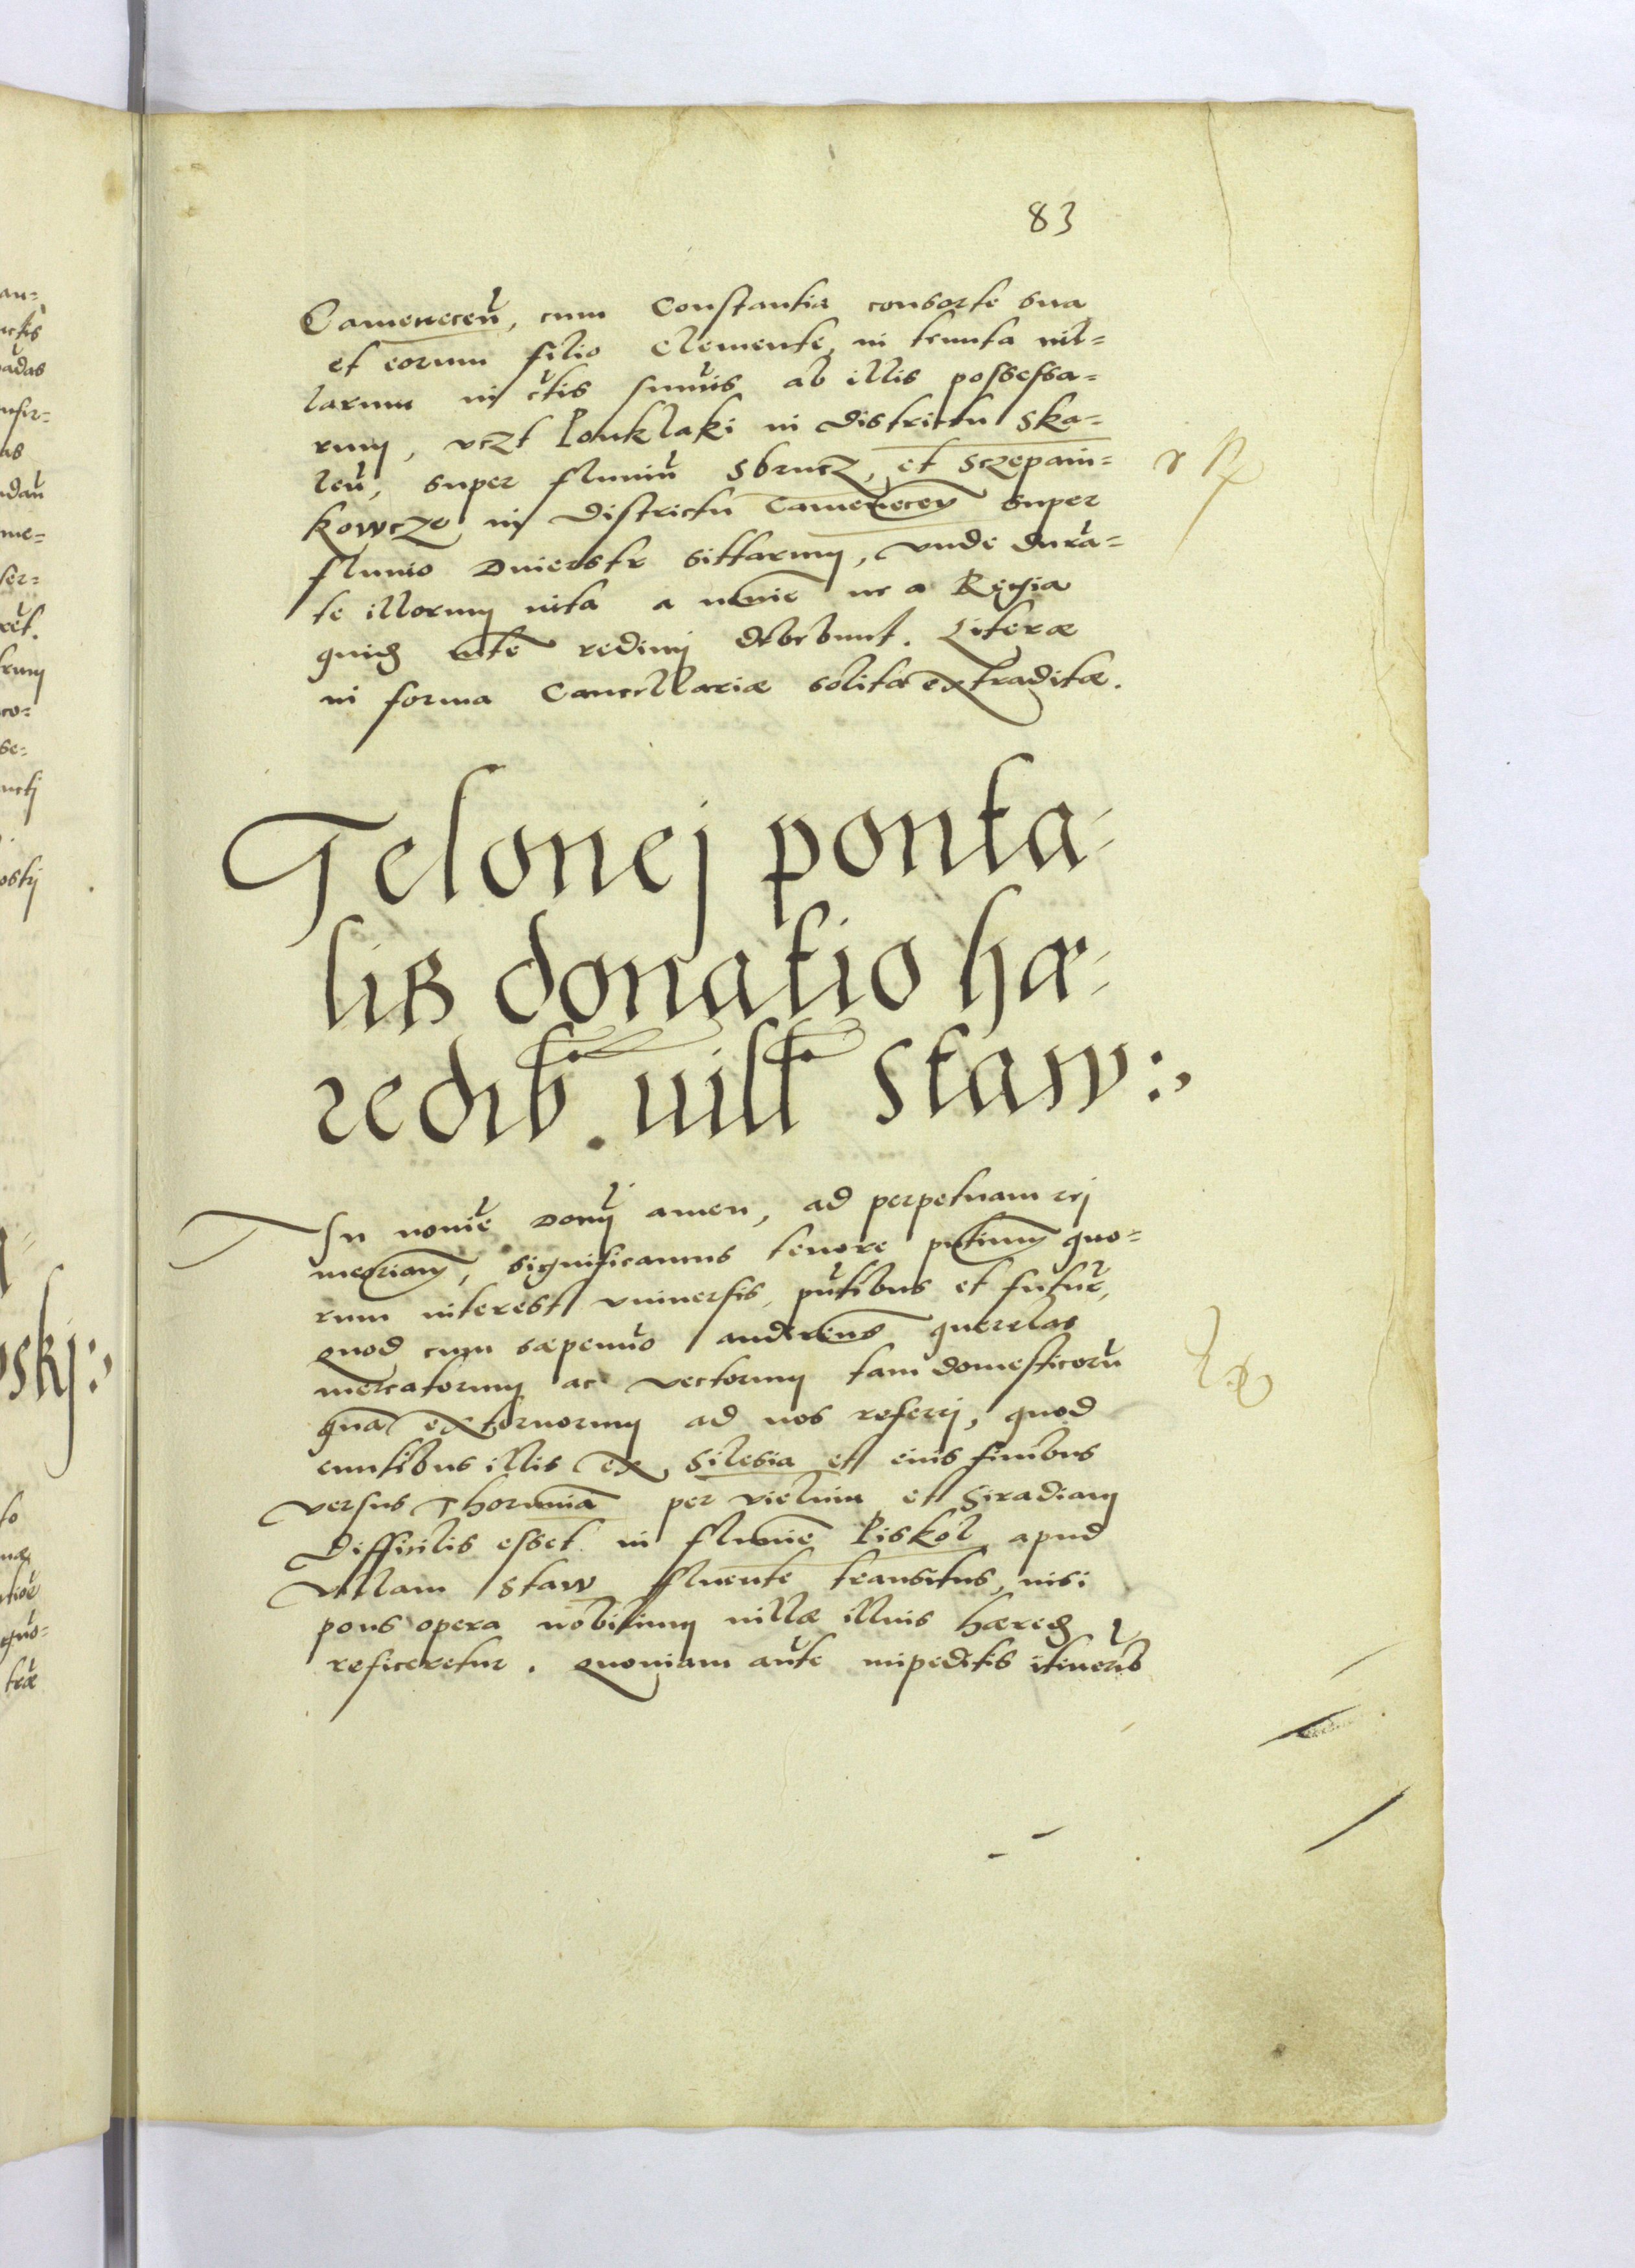 83
Cameneceñ, cum Constantia consorte sua
et eorum filio Clemente, in tenuta vil=
larum in ctis summis ab illis possessa=
rum, vczt Ponklaki in districtu Ska=
leñ, super fluuiu Sbrucz, et Sczepani=
kowcze in districtu Camenecen super
fluuio Dniestr sittarum, vnde dura=
te illorum vita a nemine nec a Regia
quidem redimi debebunt. Literæ
in forma Cancellariæ solita extraditæ.
Telonej ponta=
lis donatio hæ=
redib. villæ Staw:
In nomine Domini amen, ad perpetuam rei
memoriam, significamus tenore pntium quo=
rum interest vniuersis, pntibus et futur,
quod cum sæpenuo querelas
mercatorum ac vectorum tam domesticoru
qua externorum ad nos referri, quod
euntibus illis ex Silesia et eius finibus
versus Thorunia per Vielun et Siradiam
difficilis esset in flumine Piskol apud
villam Staw fluente transitus, nisi
pons opera nobilium villæ illius hæred
reficeretur. Quoniam aute impeditis itinerib